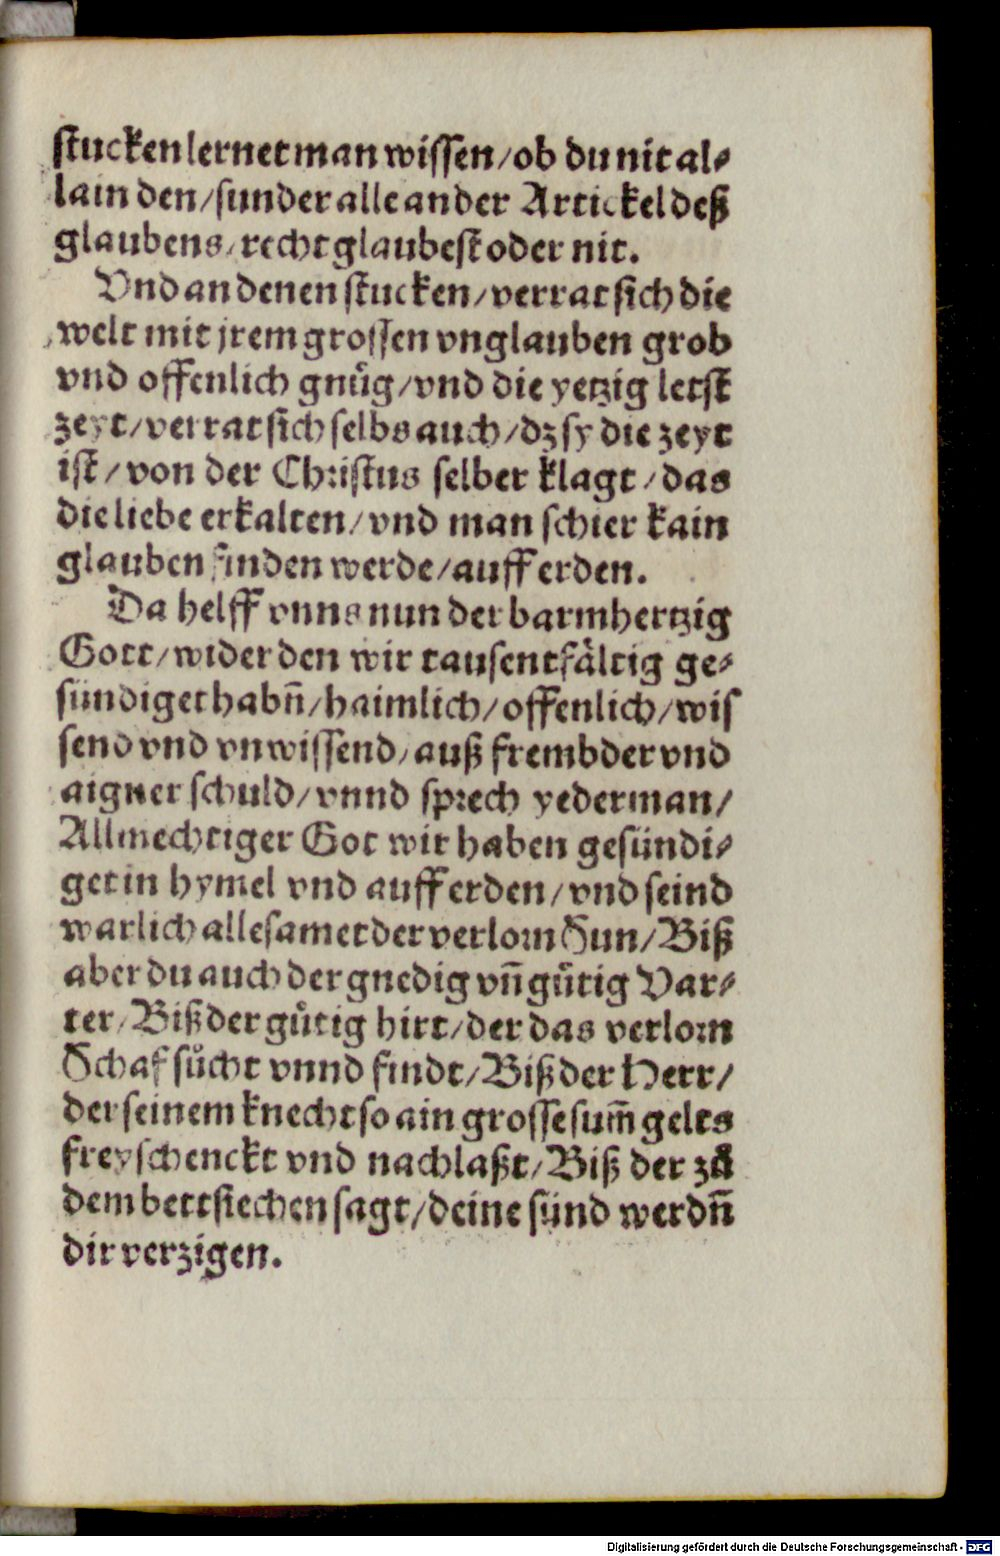 stucken lernet man wissen/ob du nit al⸗
lain den/sunder alle ander Artickel deß
glaubens/recht glaubest oder nit.
Vnd an denen stucken/verrat sich die
welt mit jrem grossen vnglauben grob
vnd offenlich gnůg/vnd die yetzig letst
zeyt/verrat sich selbs auch/dz sy die zeyt
ist/von der Christus selber klagt/das
die liebe erkalten/vnd man schier kain
glauben finden werde/auff erden.
Da helff vnns nun der barmhertzig
Gott/wider den wir tausentfåltig ge⸗
sündiget habn̄/haimlich/offenlich/wis
send vnd vnwissend/auß frembder vnd
aigner schuld/vnnd sprech yederman/
Allmechtiger Got wir haben gesündi⸗
get in hymel vnd auff erden/vnd seind
warlich allesamet der verlorn Sun/Biß
aber du auch der gnedig vn̄ gůtig Vat⸗
ter/Biß der gůtig hirt/der das verlorn
Schaf sůcht vnnd findt/Biß der Herr/
der seinem knecht so ain grosse sum̄ gelts
frey schenckt vnd nachlaßt/Biß der zů
dem bettsiechen sagt/deine sünd werdn̄
dir verzigen.
Digitalisierung gefördert durch die Deutsche Forschungsgemeinschaft - DFG